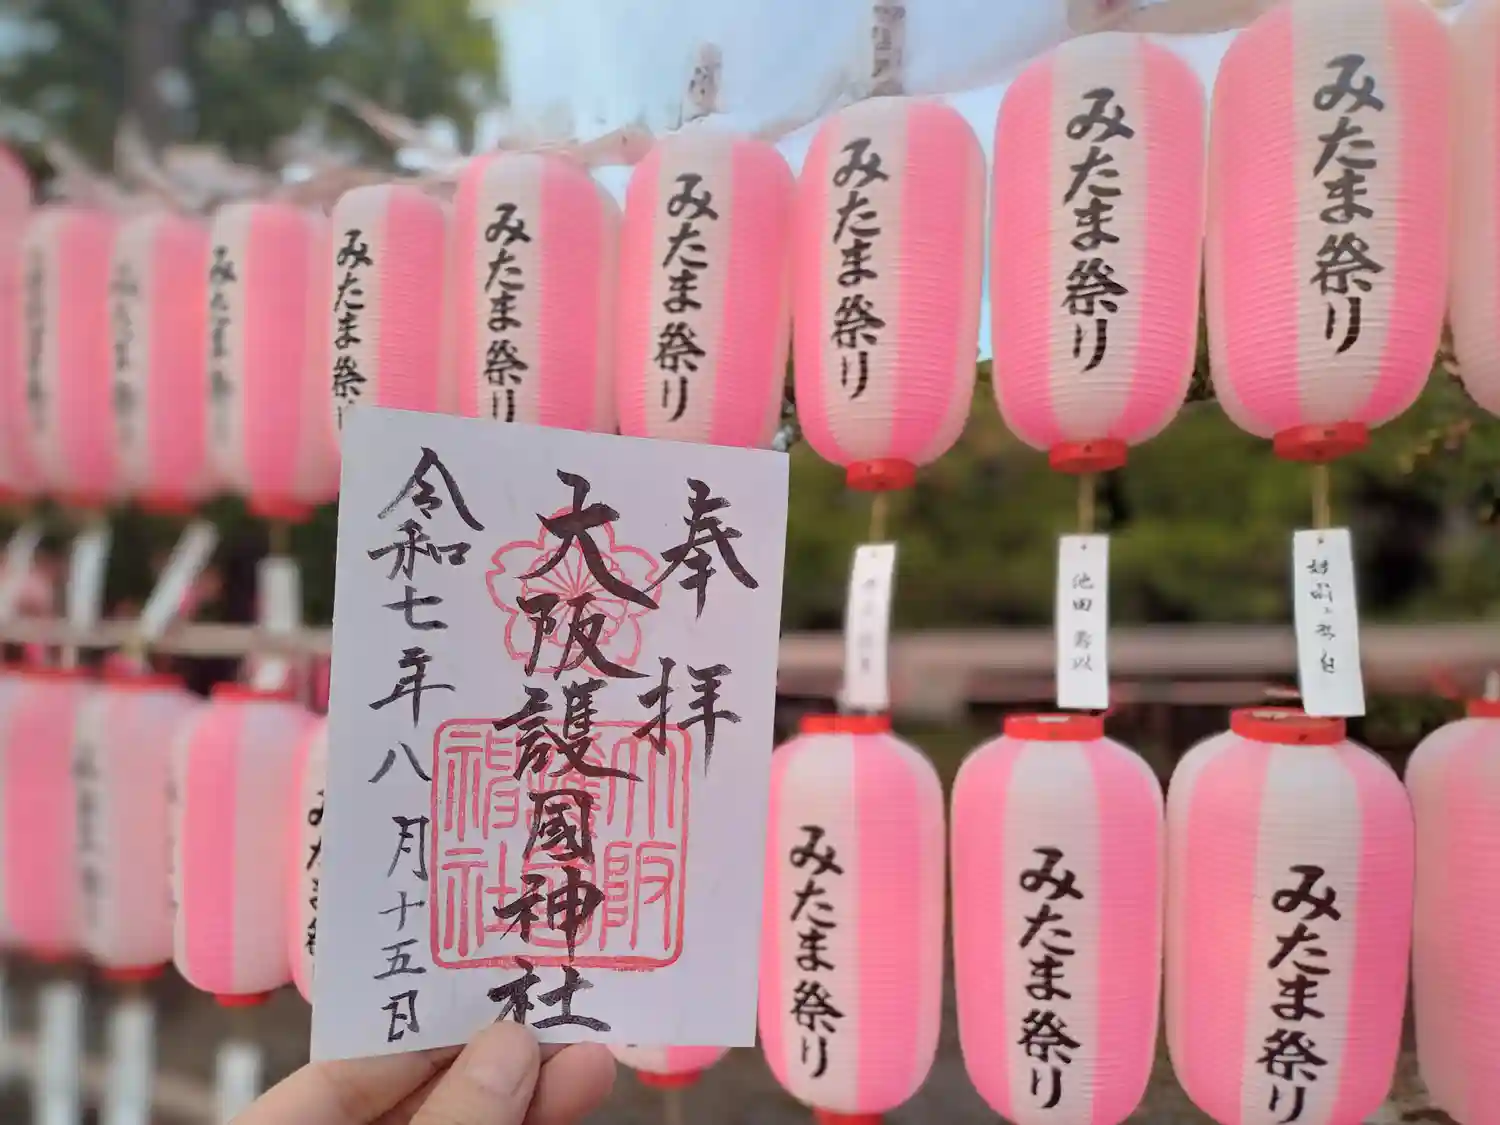 みたま祭り
みたま祭り
みたま祭り
みたま祭り
みたま祭り
みたま祭
みたま
奉拝
大阪護國神社
令和七年八月十五日
池田
みたま祭り
みたま祭り
みたま祭り